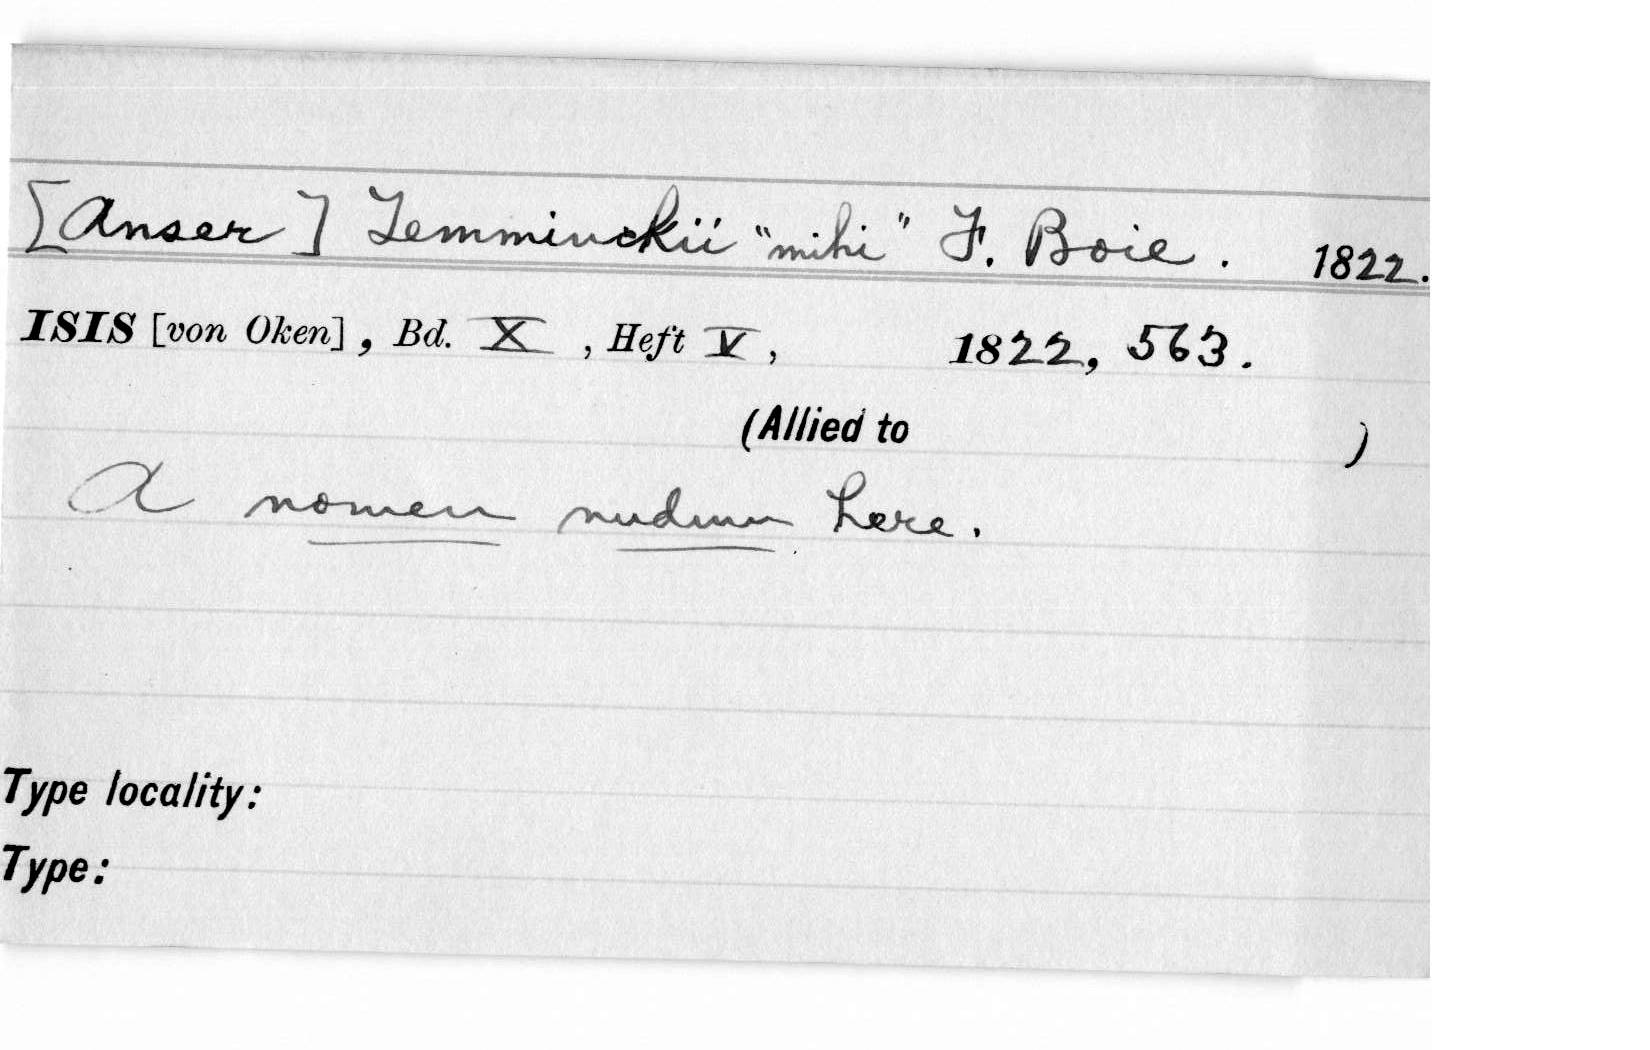 [Anser] Temminckii "mihi" F. Boie. 1822.
ISIS [von Oken], Bd. X, Heft V, 1822, 563.
(Allied to )
A nomen nudum here.
Type locality:
Type: